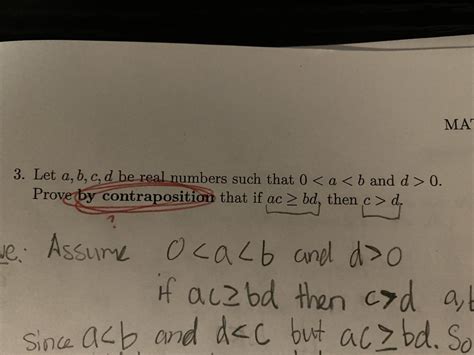 MAT
3. Let a, b, c, d be real numbers such that 0 < a < b and d > 0.
Prove by contraposition that if ac ≥ bd, then c > d.
?
ve: Assume 0<a<b and d>0
if ac≥bd then c>d a,b
since a<b and d<c but ac≥bd. So